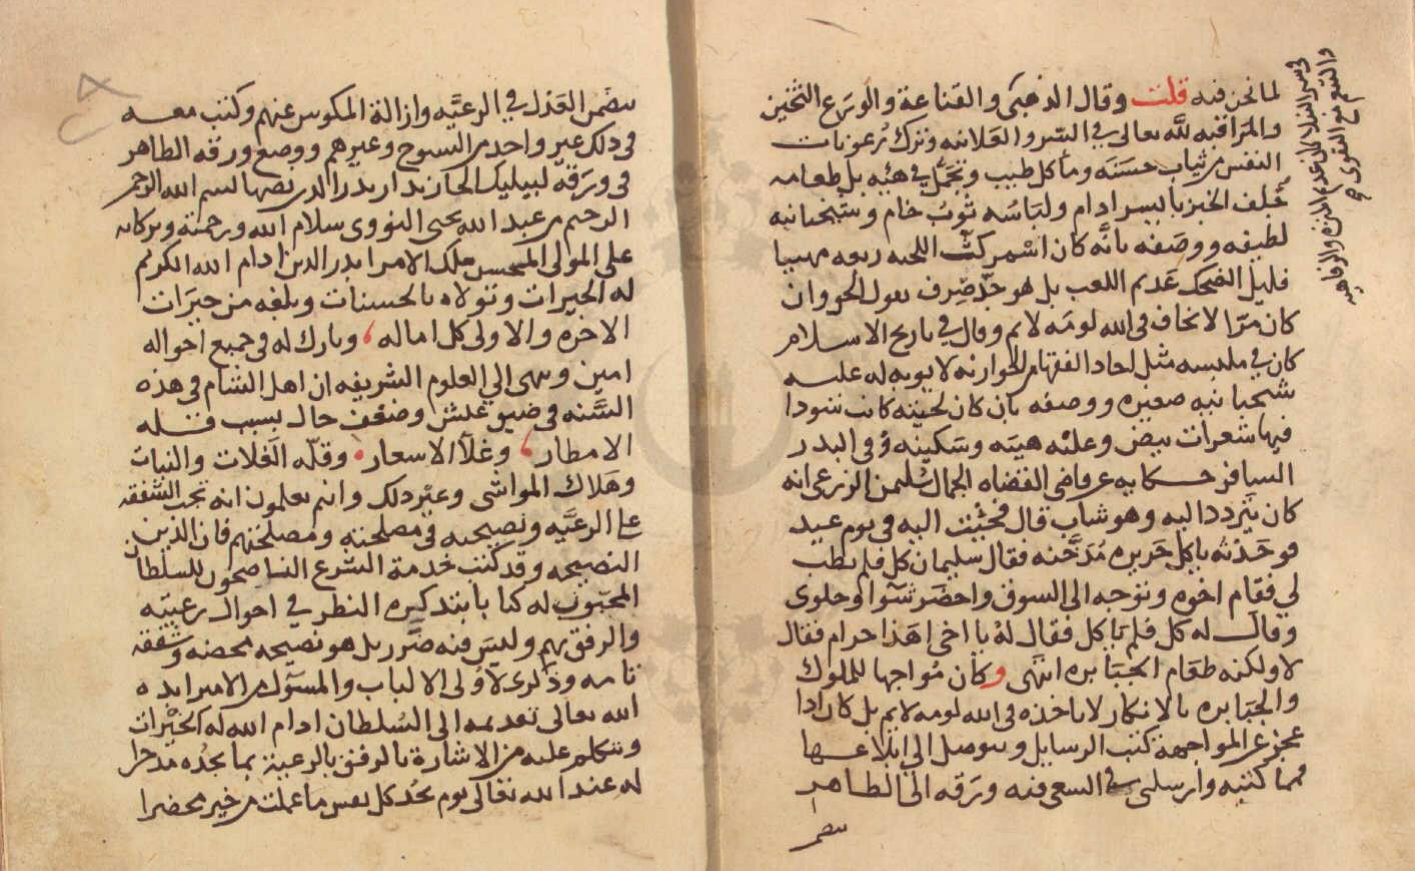 لما نحن فيه قلت وقال الذهبي والقناعة والورع الثخين
والمراقبة لله تعالى في السر والعلانيه وترك رعونات
النفس من ثياب حسنه ومأكل طيب وتجمل في هيئه بل طعامه
جلف الخبز بأيسر ادام ولباسه ثوب خام وسبختيانيه
لطيفه ووصفه بانه كان اسمر كث اللحيه ربعه مهيبا
قليل الضحك عديم اللعب بل هو جد صرف يقول الحق وان
كان مرا لا يخاف في الله لومة لائم وقال في تاريخ الاسلام
كان في ملبسه مثل احاد الفقهاء الحوارنه لا يوبه له عليه
شبختانيه صغيره ووصفه بان كان لحيته كانت سودا
فيها شعرات بيض وعليه هيبه وسكينه وفي البدر
السافر حكايه عن قاضي القضاه الجمال سليمن الزرعي انه
كان يتردد اليه وهو شاب قال فجئت اليه في يوم عيد
فوجدته ياكل حريره مدخنه فقال سليمان كل فلم تطب
لي فقام اخوه وتوجه الى السوق واحضر شوا وحلوى
وقال له كل فلم ياكل فقال له يا اخي اهذا حرام فقال
لا ولكنه طعام الجبابره انتهى وكان مواجها للملوك
والجبابره بالانكار لا ياخذه في الله لومه لايم بل كان اذا
عجز عن المواجهة كتب الرسايل ويتوصل الى ابلاغها
فمما كتبه وارسلني في السعي فيه ورقه الى الظاهر
تتضمن
وفي سير النبلاء للذ عدم الميزه والرفاهيه
والتنعم مع التقوى
تتضمن العدل في الرعيه وازالة المكوس عنهم وكتب معه
في ذلك غير واحد من الشيوخ وغيرهم ووضع ورقه الظاهر
في ورقة لبيليك الخازندار بدر الدين نصها بسم الله الرحمن
الرحيم من عبد الله يحيى النووي سلام الله ورحمته وبركاته
على المولى المحسن ملك الامرا بدر الدين ادام الله الكريم
له الخيرات وتولاه بالحسنات وبلغه من خيرات
الاخره والاولى كل اماله وبارك له في جميع احواله
امين وينهى الى العلوم الشريفه ان اهل الشام في هذه
السنه في ضيق عيش وضعف حال بسبب قله
الامطار وغلاء الاسعار وقله الغلات والنبات
وهلاك المواشي وغير ذلك وانتم تعلمون انه تجب الشفقه
على الرعيه ونصيحته في مصلحته ومصلحتهم فان الدين
النصيحه وقد كتب خدمة الشرع الناصحون للسلطان
المحبون له كتابا بتذكيره النظر في احوال رعيته
والرفق بهم وليس فيه ضرر بل هو نصيحه محضه وشفقه
تامه وذكرى لاولى الالباب والمسئول من الامير ايده
الله تعالى تقديمه الى السلطان ادام الله له الخيرات
ويتكلم عليه من الاشارة بالرفق بالرعية بما يجده مدخرا
له عند الله تعالى يوم تجد كل نفس ما عملت من خير محضرا